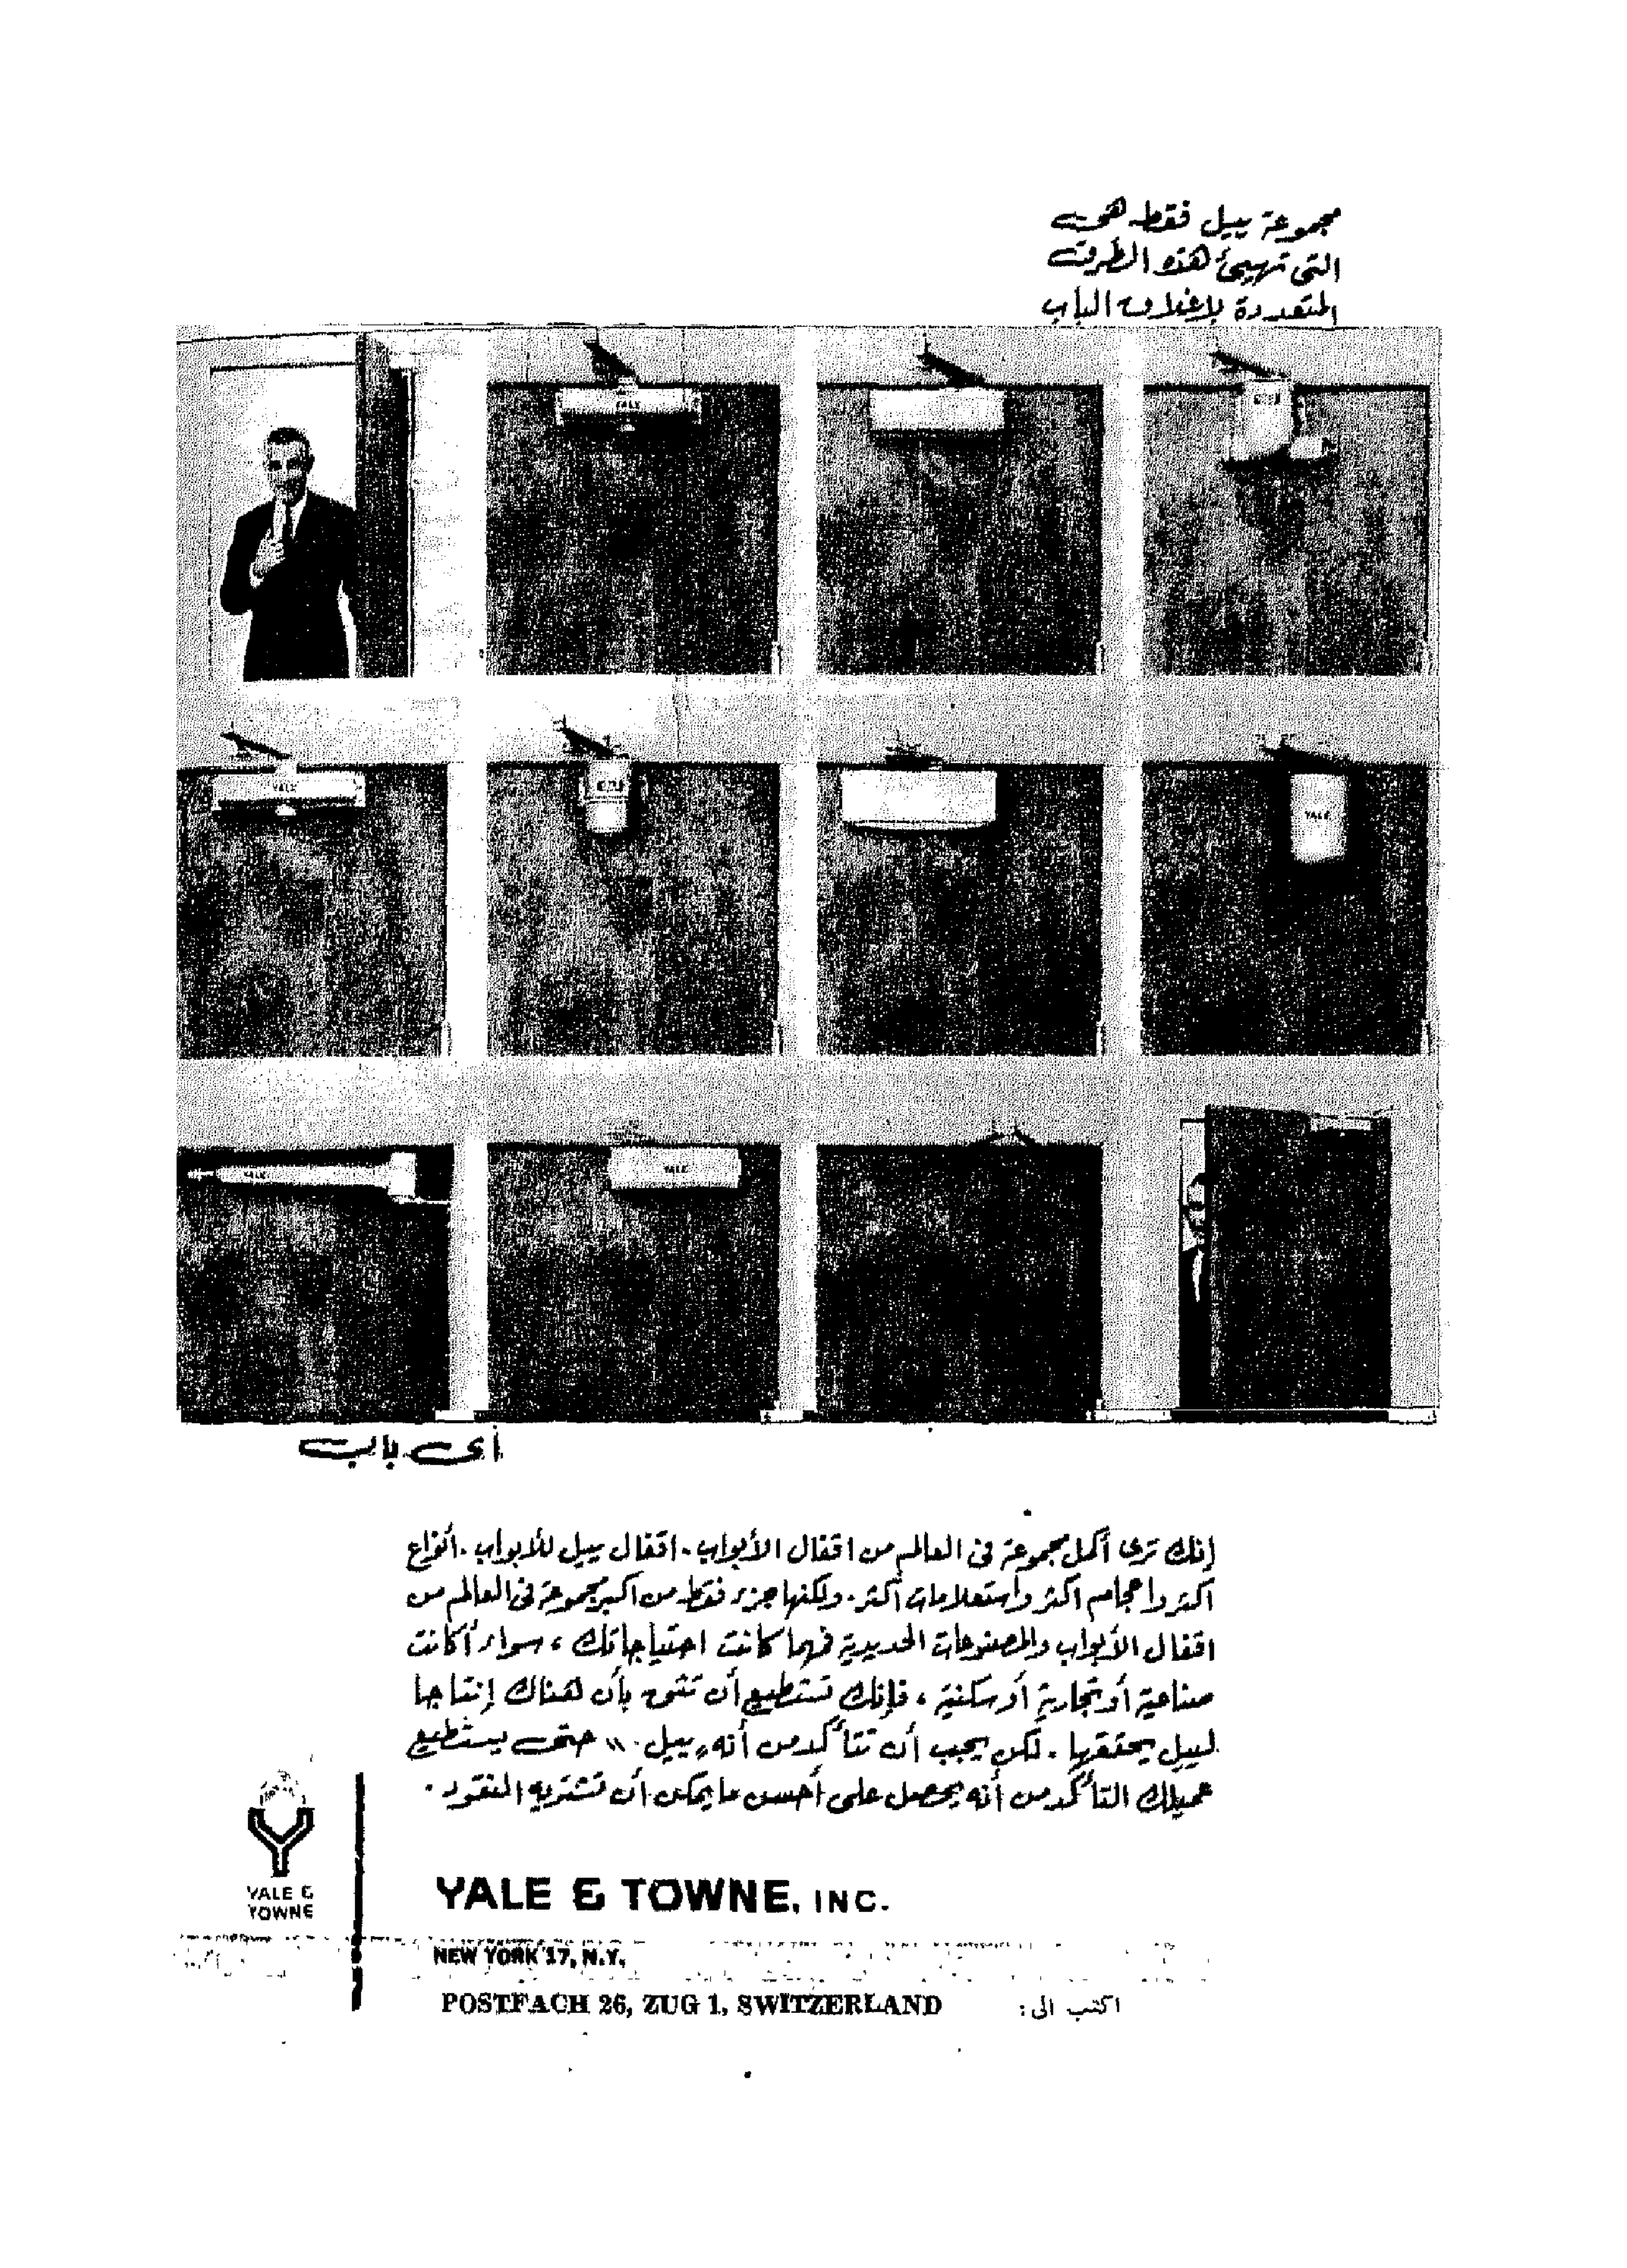 مجموعة ييل فقط هى
التى تهيئ هذه الطرق
المتعددة لإغلاق الباب
YALE
YALE
YALE
YALE
YALE
أى باب
إنك ترى أكمل مجموعة فى العالم من اقفال الأبواب. اقفال ييل للأبواب. أنواع
أكثر واحجام اكثر واستعلامات أكثر. ولكنها جزء فقط من أكبر مجموعة فى العالم من
اقفال الأبواب والمصنوعات الحديدية فمهما كانت احتياجاتك، سواء أكانت
صناعية أو تجارية أو سكنية، فإنك تستطيع أن تثق بأن هناك إنتاجا
لييل يحققها. لكن يجب أن تتأكد من أنه «ييل.» حتى يستطيع
عميلك التأكد من أنه يحصل على أحسن ما يمكن أن تشتريه النقود.
YALE & TOWNE
YALE & TOWNE, INC.
NEW YORK 17, N.Y.
POSTFACH 26, ZUG 1, SWITZERLAND اكتب الى: